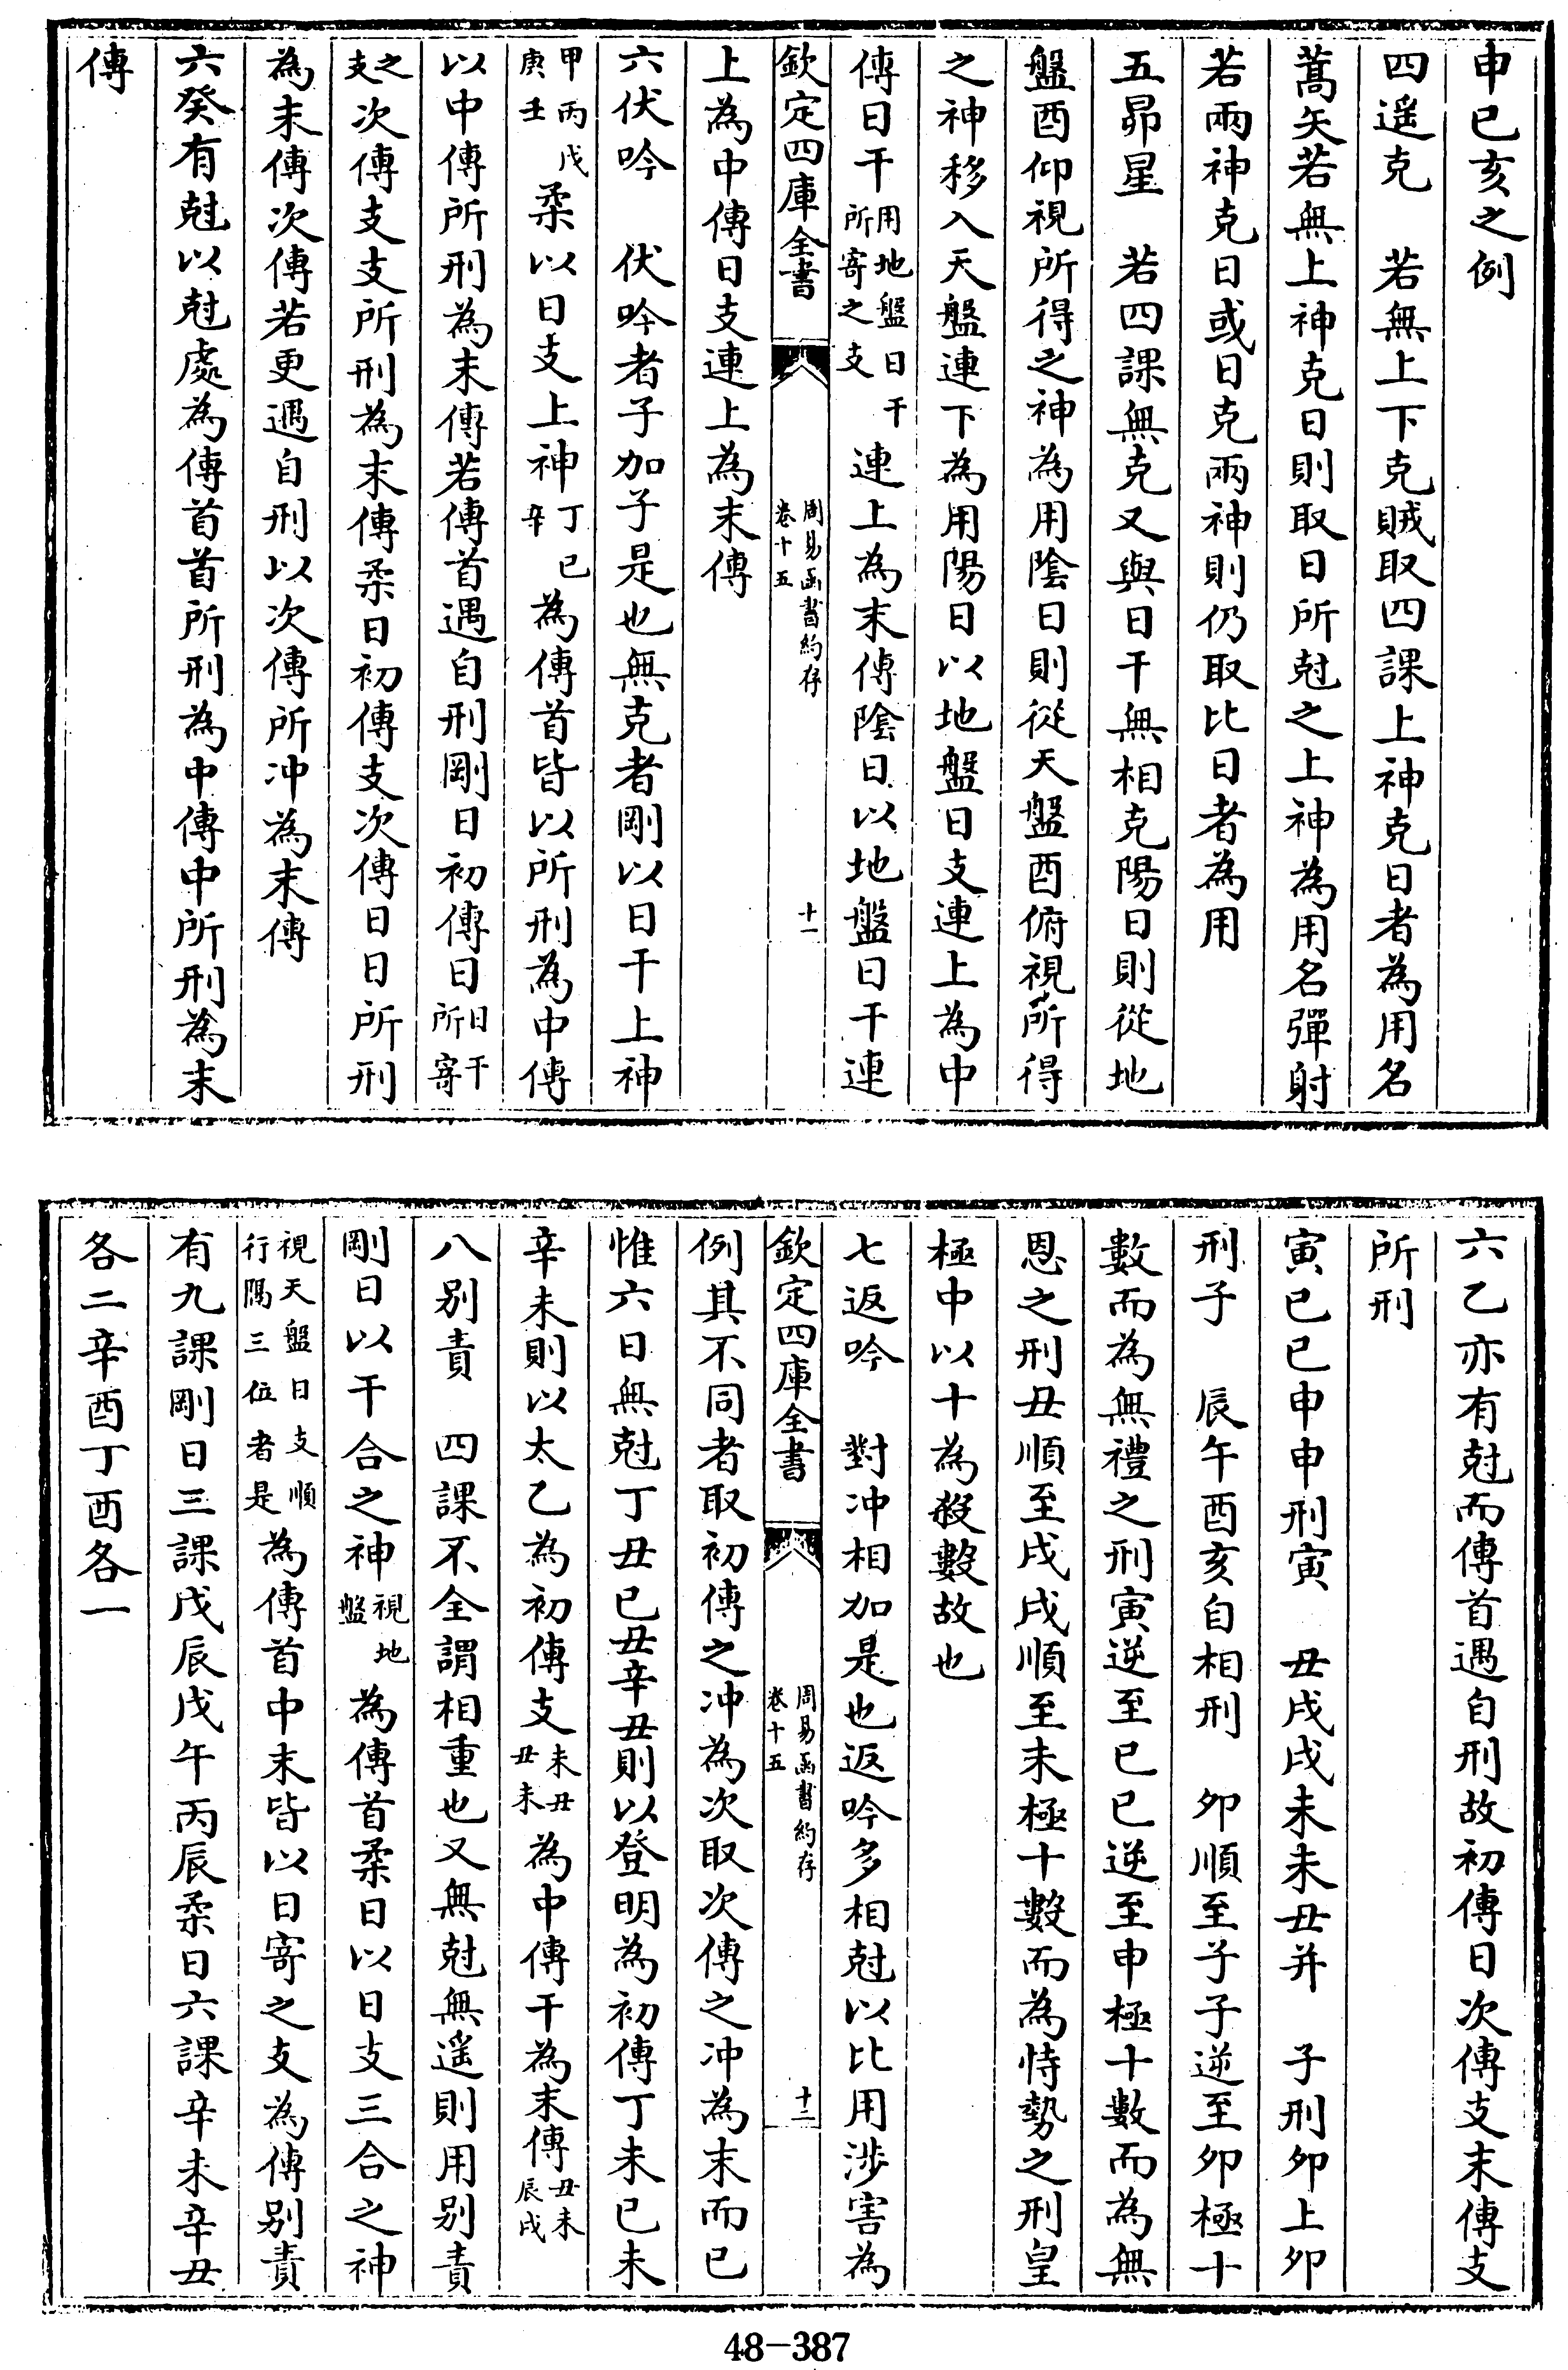 申巳亥之例
四遥克　若無上下克賊取四課上神克日者為用名
蒿矢若無上神克日則取日所尅之上神為用名彈射
若兩神克日或日克兩神則仍取比日者為用
五昴星　若四課無克又與日干無相克陽日則從地
盤酉仰視所得之神為用陰日則從天盤酉俯視所得
之神移入天盤連下為用陽日以地盤日支連上為中
傳日干用地盤日干所寄之支連上為末傳陰日以地盤日干連
欽定四庫全書　周易函書約存卷十五　十一
上為中傳日支連上為末傳
六伏吟　伏吟者子加子是也無克者剛以日干上神
甲丙戊庚壬柔以日支上神丁己辛為傳首皆以所刑為中傳
以中傳所刑為末傳若傳首遇自刑剛日初傳日日干所寄
之支次傳支支所刑為末傳柔日初傳支次傳日日所刑
為末傳次傳若更遇自刑以次傳所冲為末傳
六癸有尅以尅處為傳首首所刑為中傳中所刑為末
傳
六乙亦有尅而傳首遇自刑故初傳日次傳支末傳支
所刑
寅巳巳申申刑寅　丑戌戌未未丑并　子刑卯上卯
刑子　辰午酉亥自相刑　卯順至子子逆至卯極十
數而為無禮之刑寅逆至巳巳逆至申極十數而為無
恩之刑丑順至戌戌順至未極十數而為恃勢之刑皇
極中以十為殺數故也
七返吟　對冲相加是也返吟多相尅以比用涉害為
欽定四庫全書　周易函書約存卷十五　十二
例其不同者取初傳之冲為次取次傳之冲為末而已
惟六日無尅丁丑己丑辛丑則以登明為初傳丁未己未
辛未則以太乙為初傳支未丑丑未為中傳干為末傳丑未辰戌
八别責　四課不全謂相重也又無尅無遥則用别責
剛日以干合之神視地盤為傳首柔日以日支三合之神
視天盤日支順行隅三位者是為傳首中末皆以日寄之支為傳别責
有九課剛日三課戊辰戊午丙辰柔日六課辛未辛丑
各二辛酉丁酉各一
48-387